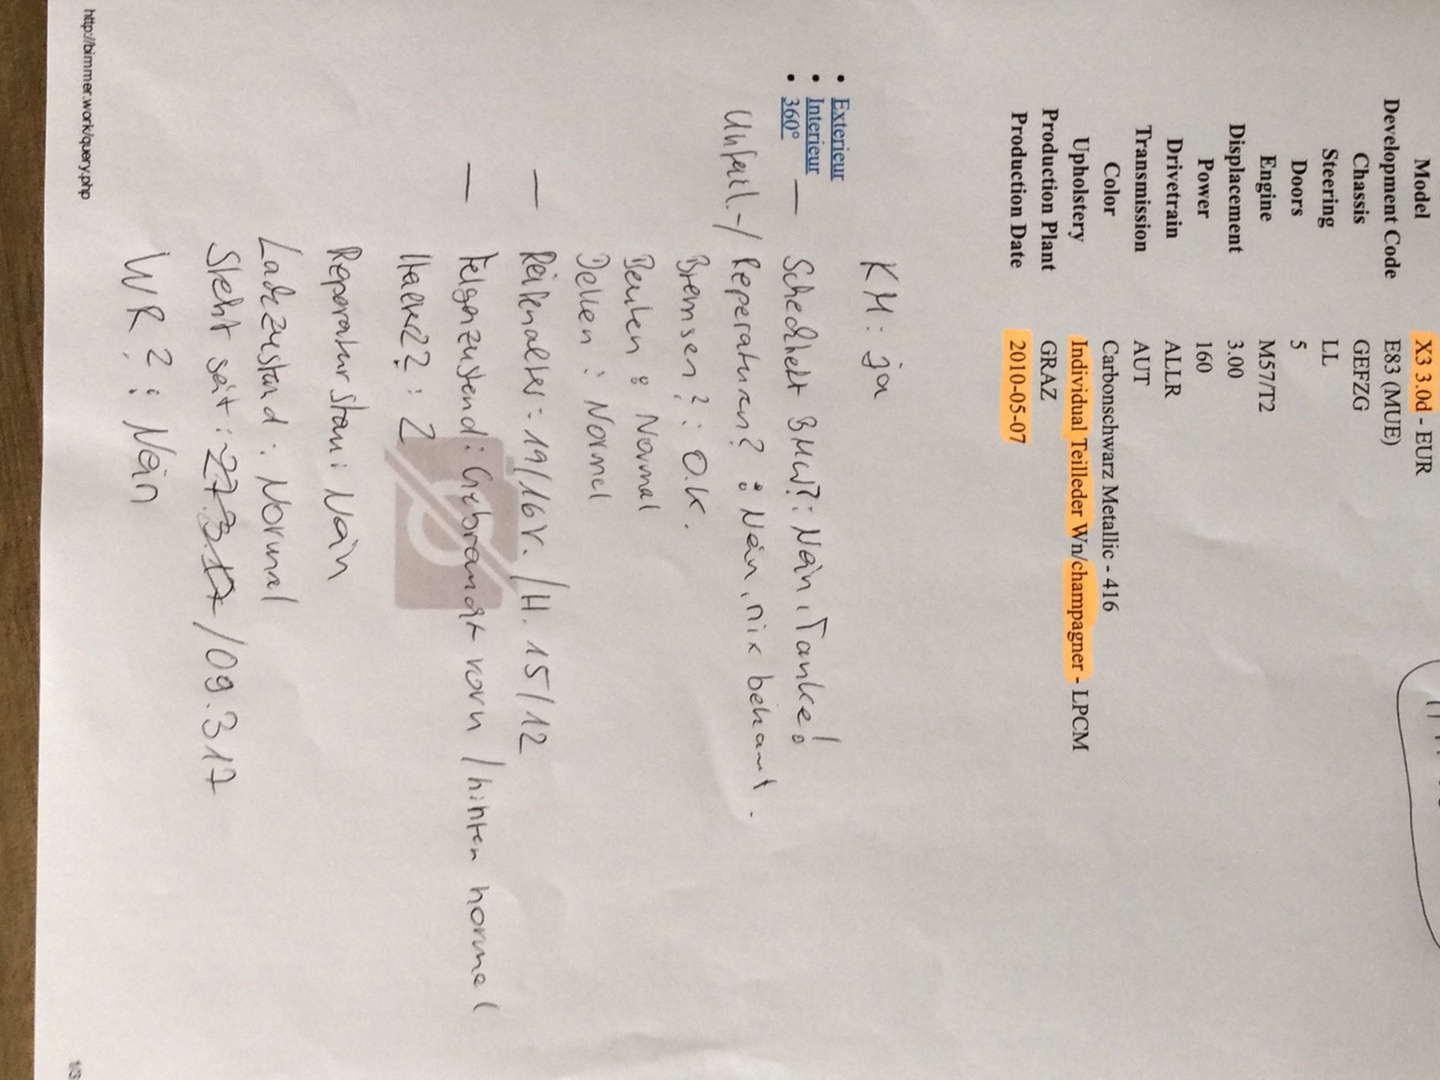 Model X3 3.0d - EUR
Development Code E83 (MUE)
Chassis GEFZG
Steering LL
Doors 5
Engine M57/T2
Displacement 3.00
Power 160
Drivetrain ALLR
Transmission AUT
Color Carbonschwarz Metallic - 416
Upholstery Individual Teilleder Wn/champagner - LPCM
Production Plant GRAZ
Production Date 2010-05-07
KM: ja
• Exterieur
• Interieur
• 360°
— Scheckheft BMW?: Nein, Tanke!
Unfall-/Reperaturen?: Nein, nix bekant.
Bremsen?: O.K.
Beulen: Normal
Dellen: Normal
— Reifenalter: 19/16 V. / H. 15/12
— Felgenzustend: Gebraucht vorn / hinten normal
2
Reperaturstau: Nein
Lackzustand: Normal
Steht seit: 27.3.17 / 09.3 17
WR?: Nein
http://bimmer.work/query.php
1/3